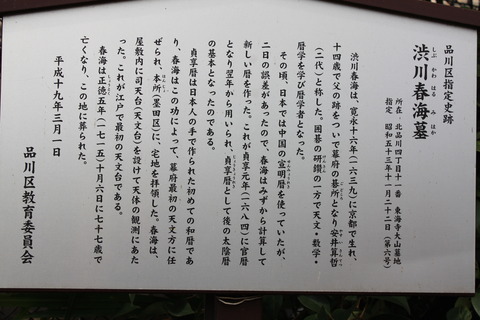 品川区指定史跡
渋川春海墓
しぶかわはるみはか
所在 北品川四丁目十一番 東海寺大山墓地
指定 昭和五十三年十一月二十二日（第六号）
渋川春海は、寛永十六年（一六三九）に京都で生れ、
十四歳で父の跡をついで幕府の碁所となり安井算哲
（二代）と称した。囲碁の研鑽の一方で天文・数学・
暦学を学び暦学者となった。
その頃、日本では中国の宣明暦を使っていたが、
二日の誤差があったので、春海はみずから計算して
新しい暦を作った。これが貞享元年（一六八四）に官暦
となり翌年から用いられ、貞享暦として後の太陰暦
の基本となったのである。
貞享暦は日本人の手で作られた初めての和暦であ
り、春海はこの功によって、幕府最初の天文方に任
ぜられ、本所（墨田区）に、宅地を拝領した。春海は、
屋敷内に司天台（天文台）を設けて天体の観測にあた
った。これが江戸で最初の天文台である。
春海は正徳五年（一七一五）十月六日に七十七歳で
亡くなり、この地に葬られた。
平成十九年三月一日
品川区教育委員会